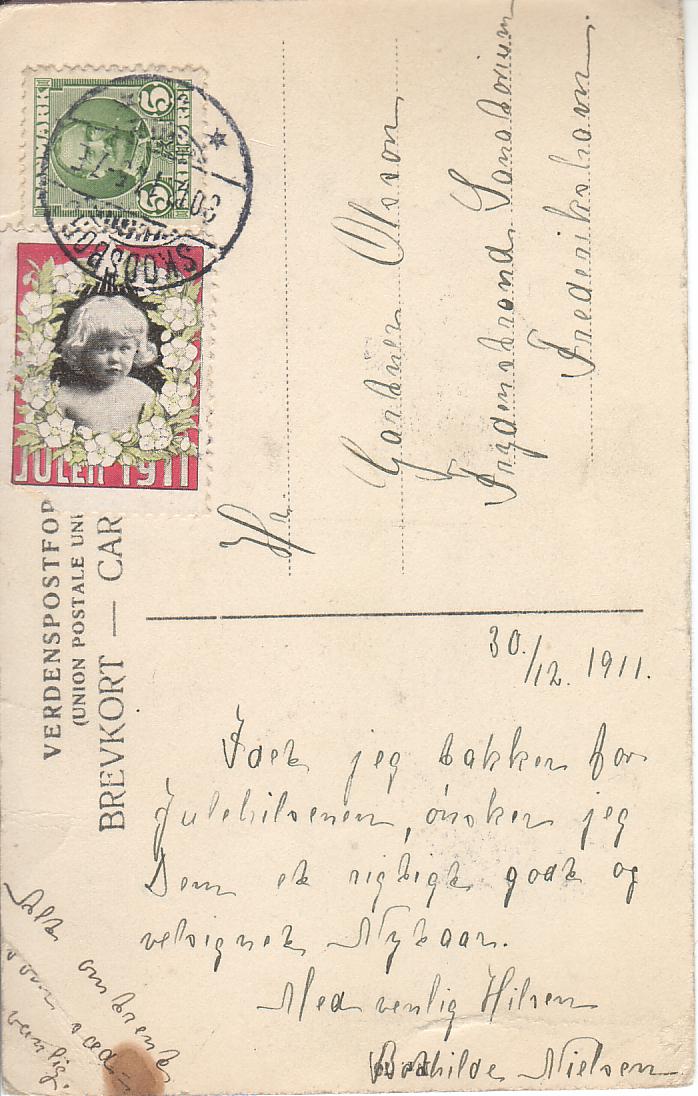 DANMARK
5 5
SKODSBORG
JULEN 1911
VERDENSPOSTFOR
(UNION POSTALE UNI
BREVKORT — CAR
Hr.
Gartner Olsson
Frydenstrand Sanatorium
Frederikshavn.
30./12. 1911.
Idet jeg takker for
Julehilsenen, ønsker jeg
Dem et rigtigt godt og
velsignet Nytaar.
Med venlig Hilsen
Bothilde Nielsen
Alt omtrent
som sæd-
vanlig.